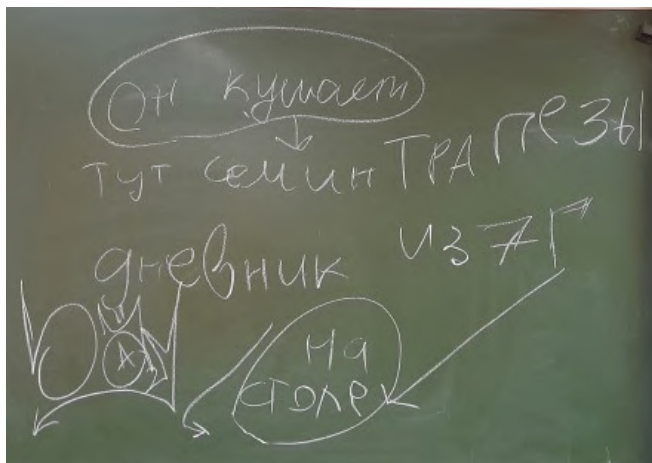 Он кушает
тут семин ТРАПЕЗЫ
дневник из 7Г
на
столе
А